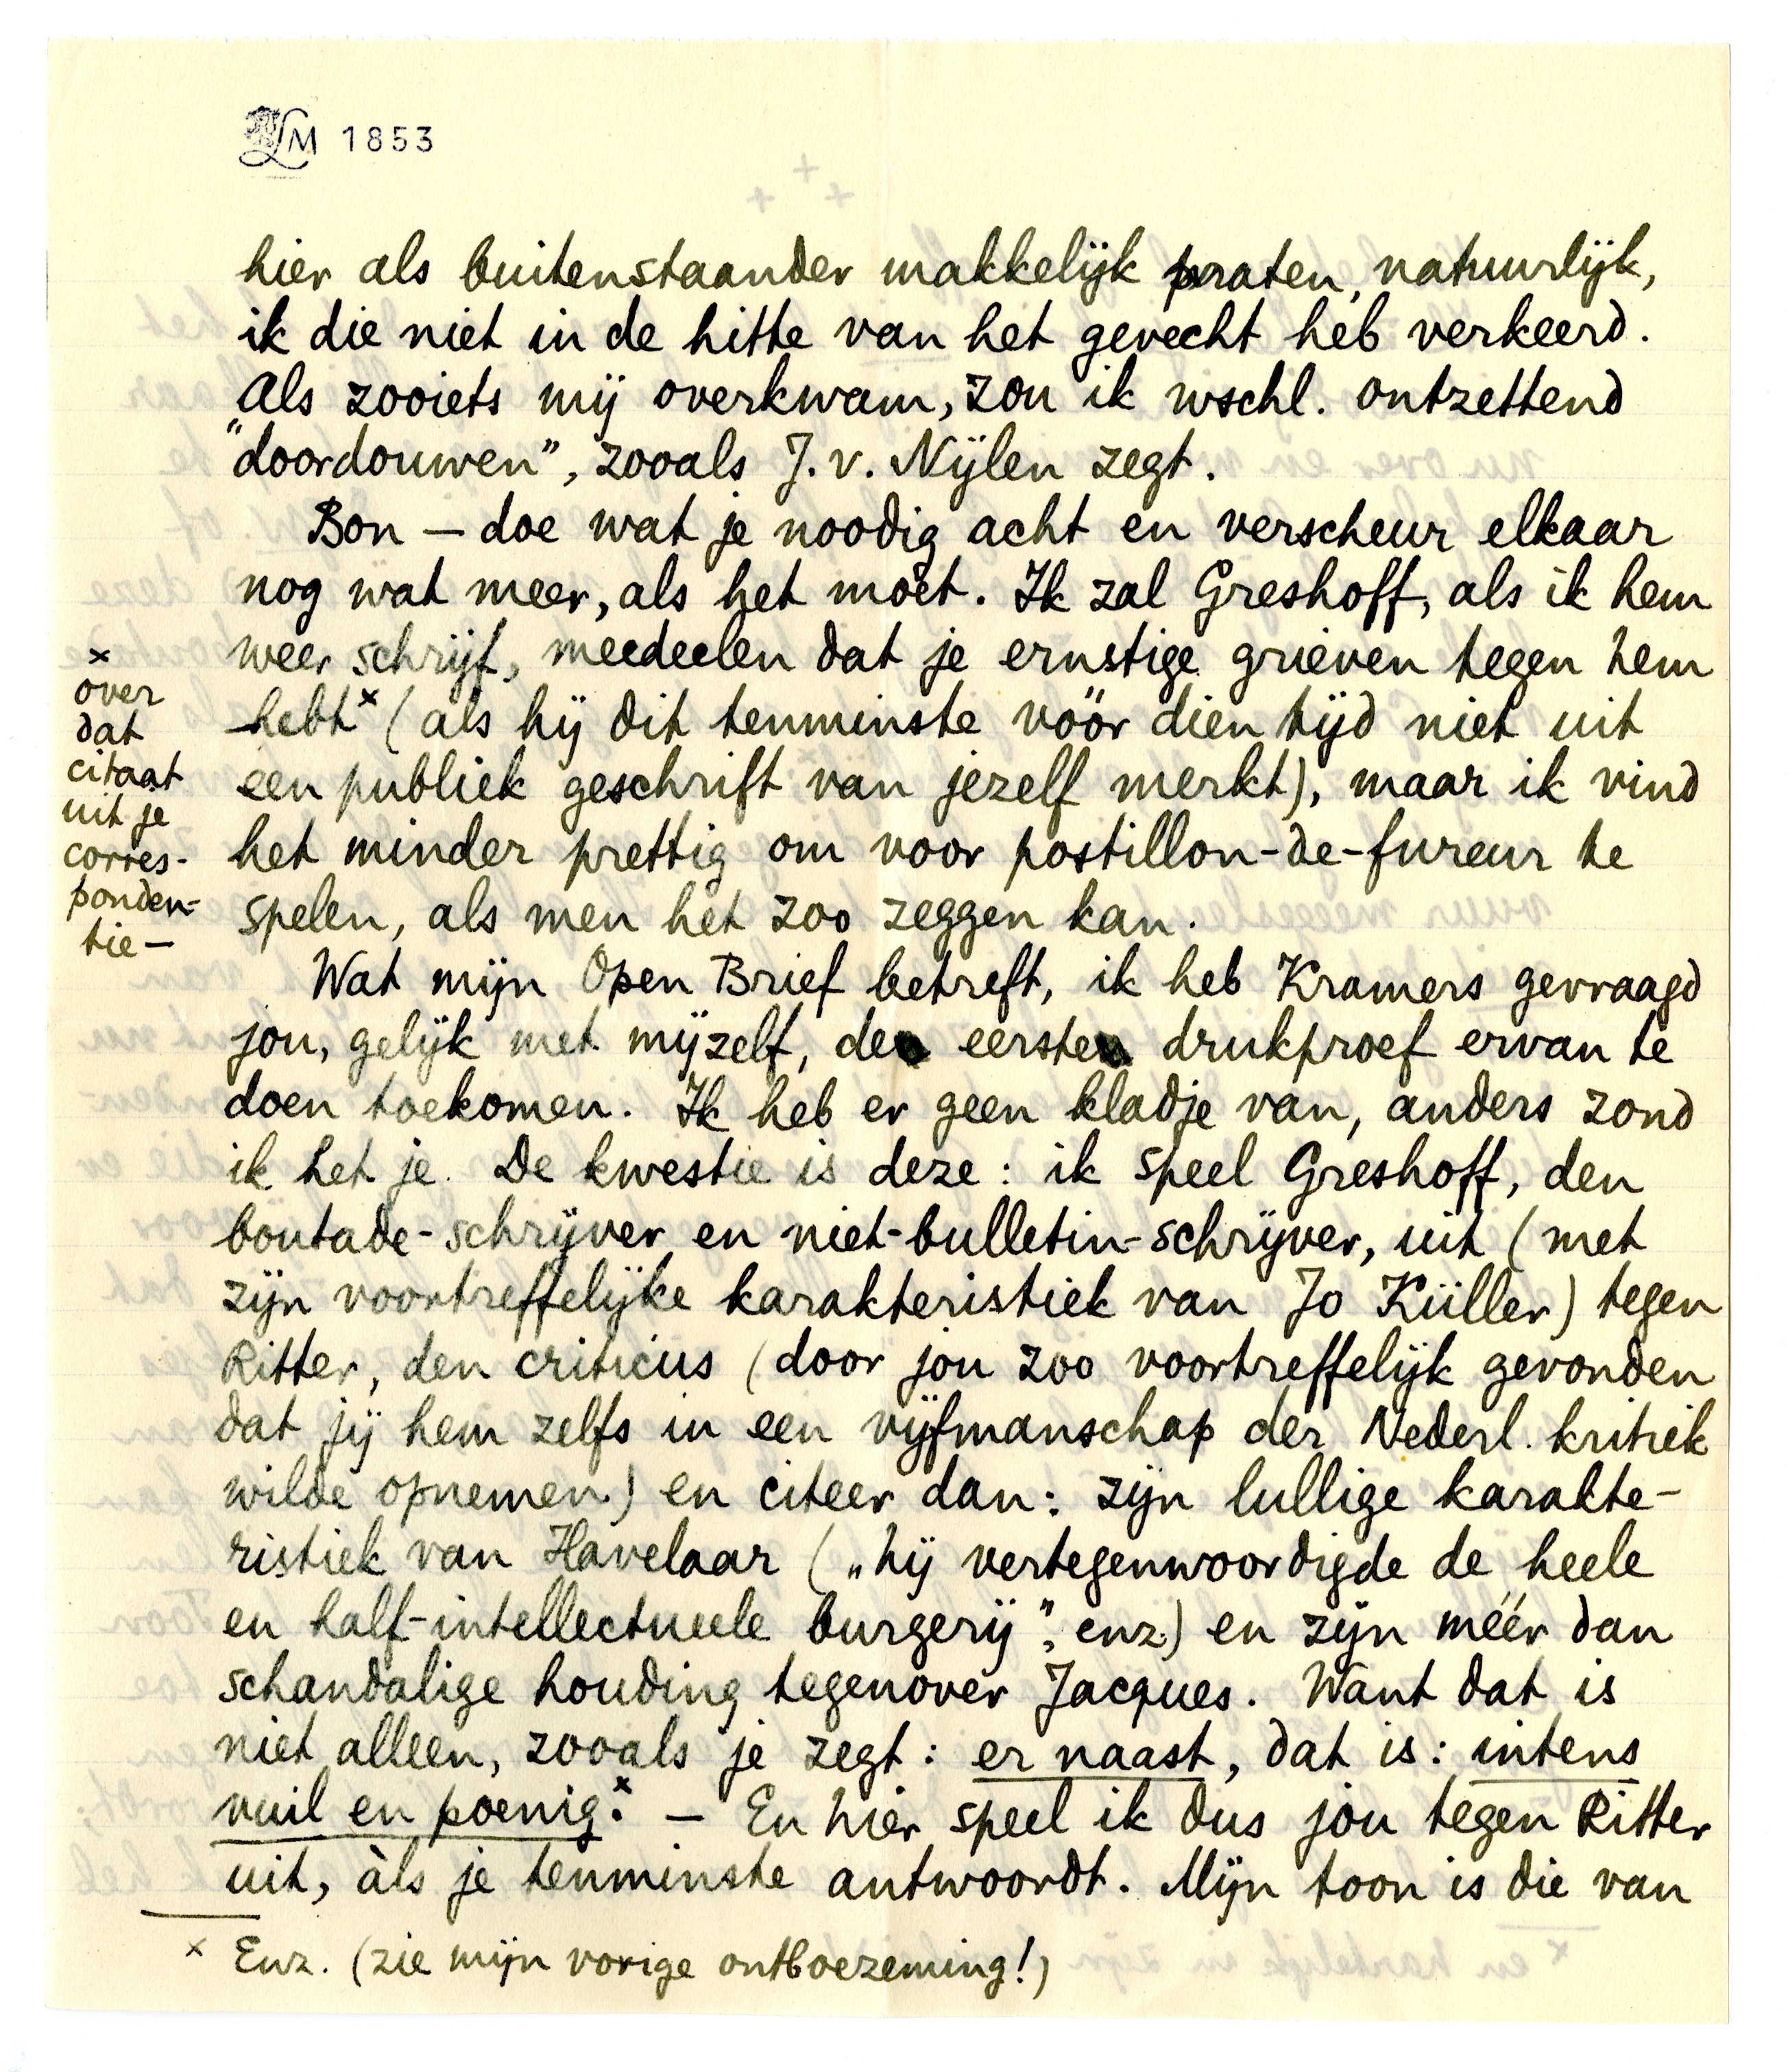 LM 1853
hier als buitenstaander makkelijk praten, natuurlijk,
ik die niet in de hitte van het gevecht heb verkeerd.
Als zooiets mij overkwam, zou ik wschl. ontzettend
"doordouwen", zooals J. v. Nijlen zegt.
Bon – doe wat je noodig acht en verscheur elkaar
nog wat meer, als het moèt. Ik zal Greshoff, als ik hem
weer schrijf, meedeelen dat je ernstige grieven tegen hem
hebt× (als hij dit tenminste vóór dien tijd niet uit
een publiek geschrift van jezelf merkt), maar ik vind
het minder prettig om voor postillon-de-fureur te
spelen, als men het zoo zeggen kan.
×
over
dat
citaat
uit je
corres-
ponden-
tie –
Wat mijn Open Brief betreft, ik heb Kramers gevraagd
jou, gelijk met mijzelf, de eerste drukproef ervan te
doen toekomen. Ik heb er geen kladje van, anders zond
ik het je. De kwestie is deze: ik speel Greshoff, den
boutade-schrijver en niet-bulletin-schrijver, uit (met
zijn voortreffelijke karakteristiek van Jo Küller) tegen
Ritter, den criticus (door jou zoo voortreffelijk gevonden
dat jij hem zelfs in een vijfmanschap der Nederl. kritiek
wilde opnemen) en citeer dan: zijn lullige karakte-
ristiek van Havelaar („hij vertegenwoordigde de heele
en half-intellectueele burgerij", enz.) en zijn méér dan
schandalige houding tegenover Jacques. Want dat is
niet alleen, zooals je zegt: er naast, dat is: intens
vuil en poenig.× – En hier speel ik dus jou tegen Ritter
uit, àls je tenminste antwoordt. Mijn toon is die van
× Enz. (zie mijn vorige ontboezeming!)